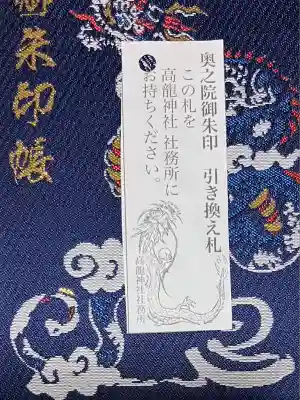 御朱印帳
奥之院御朱印　引き換え札
この札を
高龍神社 社務所に
お持ちください。
高龍神社社務所